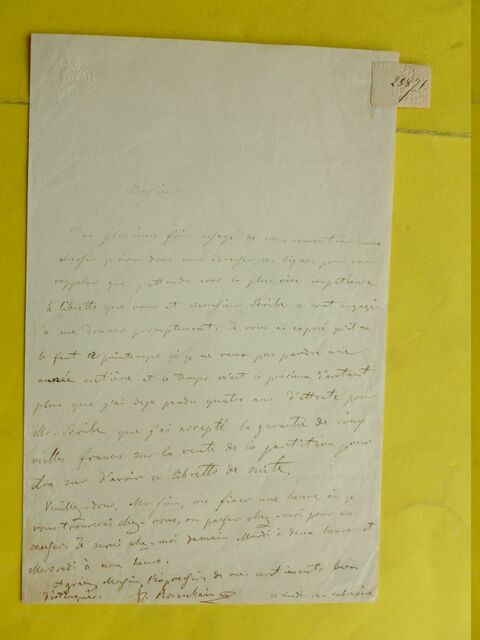 25871
Monsieur
J'ai plusieurs fois essayé de vous rencontrer sans
donc vous adresser ces lignes pour vous
rappeler que j'attends avec la plus vive impatience
le libretto que vous et Monsieur Scribe se sont engagé
à me donner promptement. Je vous ai exposé qu'il me
le faut à printemps si je ne veux pas perdre une
année entière et le temps m'est si précieux d'autant
plus que j'ai deja perdu quatre ans d'attente pour
Mr. Scribe que j'ai accepté la garantie de cinq
milles francs sur la vente de la partition pour
être sur d'avoir ce libretto de suite.
Veuillez donc, Monsieur, me fixer une heure où je
vous trouverai chez vous, ou passer chez moi pour en
causer. Je serai chez moi demain Mardi à deux heures et
Mercredi à une heure.
Agréez Monsieur l'expression de mes sentiments bien
distingués. J. Rosenhain
ce Lundi